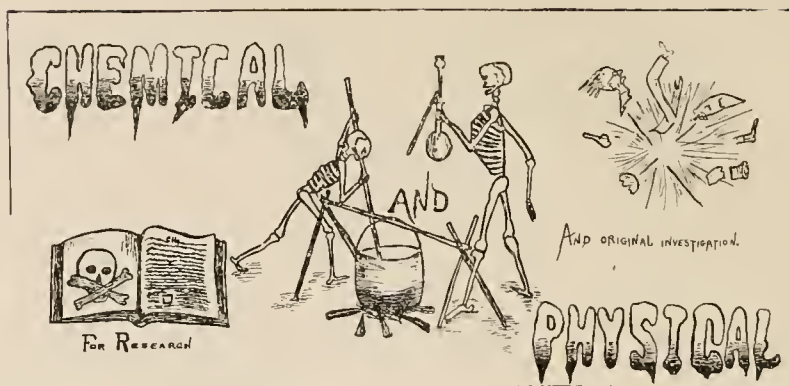 CHEMICAL
AND
AND ORIGINAL INVESTIGATION.
FOR RESEARCH
PHYSICAL